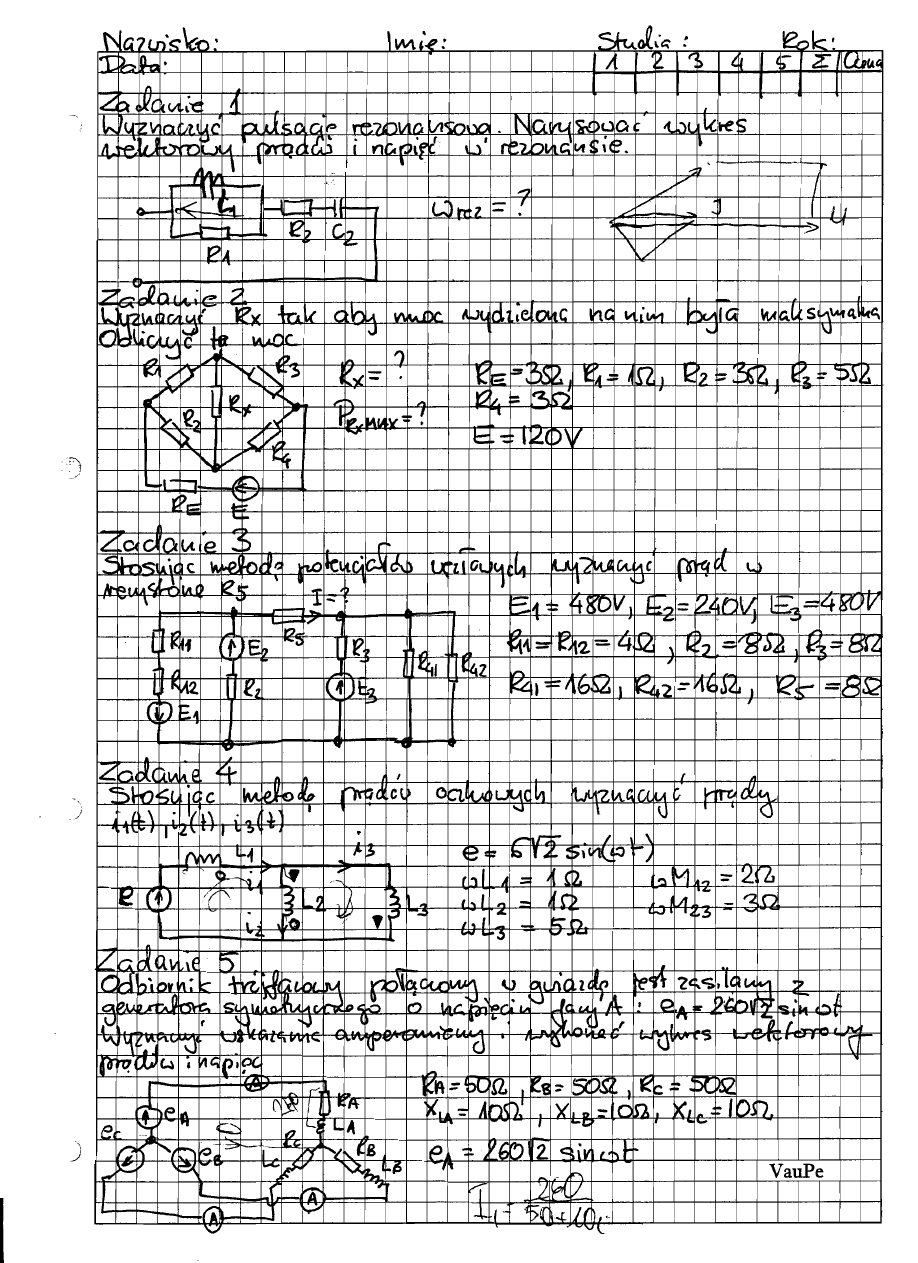 Nazwisko: Imię: Studia: Rok:
Data: 1 2 3 4 5 Σ Ocena
Zadanie 1
Wyznaczyć pulsację rezonansową. Narysować wykres
wektorowy prądów i napięć w rezonansie.
L1 R1 R2 C2 ωrez = ? I U
Zadanie 2
Wyznaczyć Rx tak aby moc wydzielona na nim była maksymalna
Obliczyć tę moc
R1 R3 Rx = ? RE = 3Ω, R1 = 1Ω, R2 = 3Ω, R3 = 5Ω
R4 = 3Ω
R2 Rx R4 PRxmax = ?
E = 120V
RE E
Zadanie 3
Stosując metodę potencjałów węzłowych wyznaczyć prąd w
rezystorze R5
I = ? E1 = 480V, E2 = 240V, E3 = 480V
R11 E2 R5 R3 R41 R42 R11 = R12 = 4Ω, R2 = 8Ω, R3 = 8Ω
R12 R2 E3 R41 = 16Ω, R42 = 16Ω, R5 = 8Ω
E1
Zadanie 4
Stosując metodę prądów oczkowych wyznaczyć prądy
i1(t), i2(t), i3(t)
L1 i3 e = 6√2 sin(ωt)
i1 ωL1 = 1Ω ωM12 = 2Ω
e L2 L3 ωL2 = 1Ω ωM23 = 3Ω
i2 ωL3 = 5Ω
Zadanie 5
Odbiornik trójfazowy połączony w gwiazdę jest zasilany z
generatora symetrycznego o napięciu fazy A: eA = 260√2 sin ωt
Wyznaczyć wskazania amperomierzy i wykonać wykres wektorowy
prądów i napięć
A RA RA = 50Ω, RB = 50Ω, RC = 50Ω
eA LA XLA = 10Ω, XLB = 10Ω, XLC = 10Ω
eC eB RC LC RB LB eA = 260√2 sin ωt
VauPe
A A
260